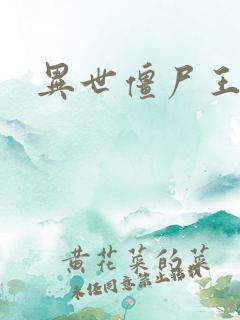 異世僵尸王
黄花菜的菜
未经同意禁止转载